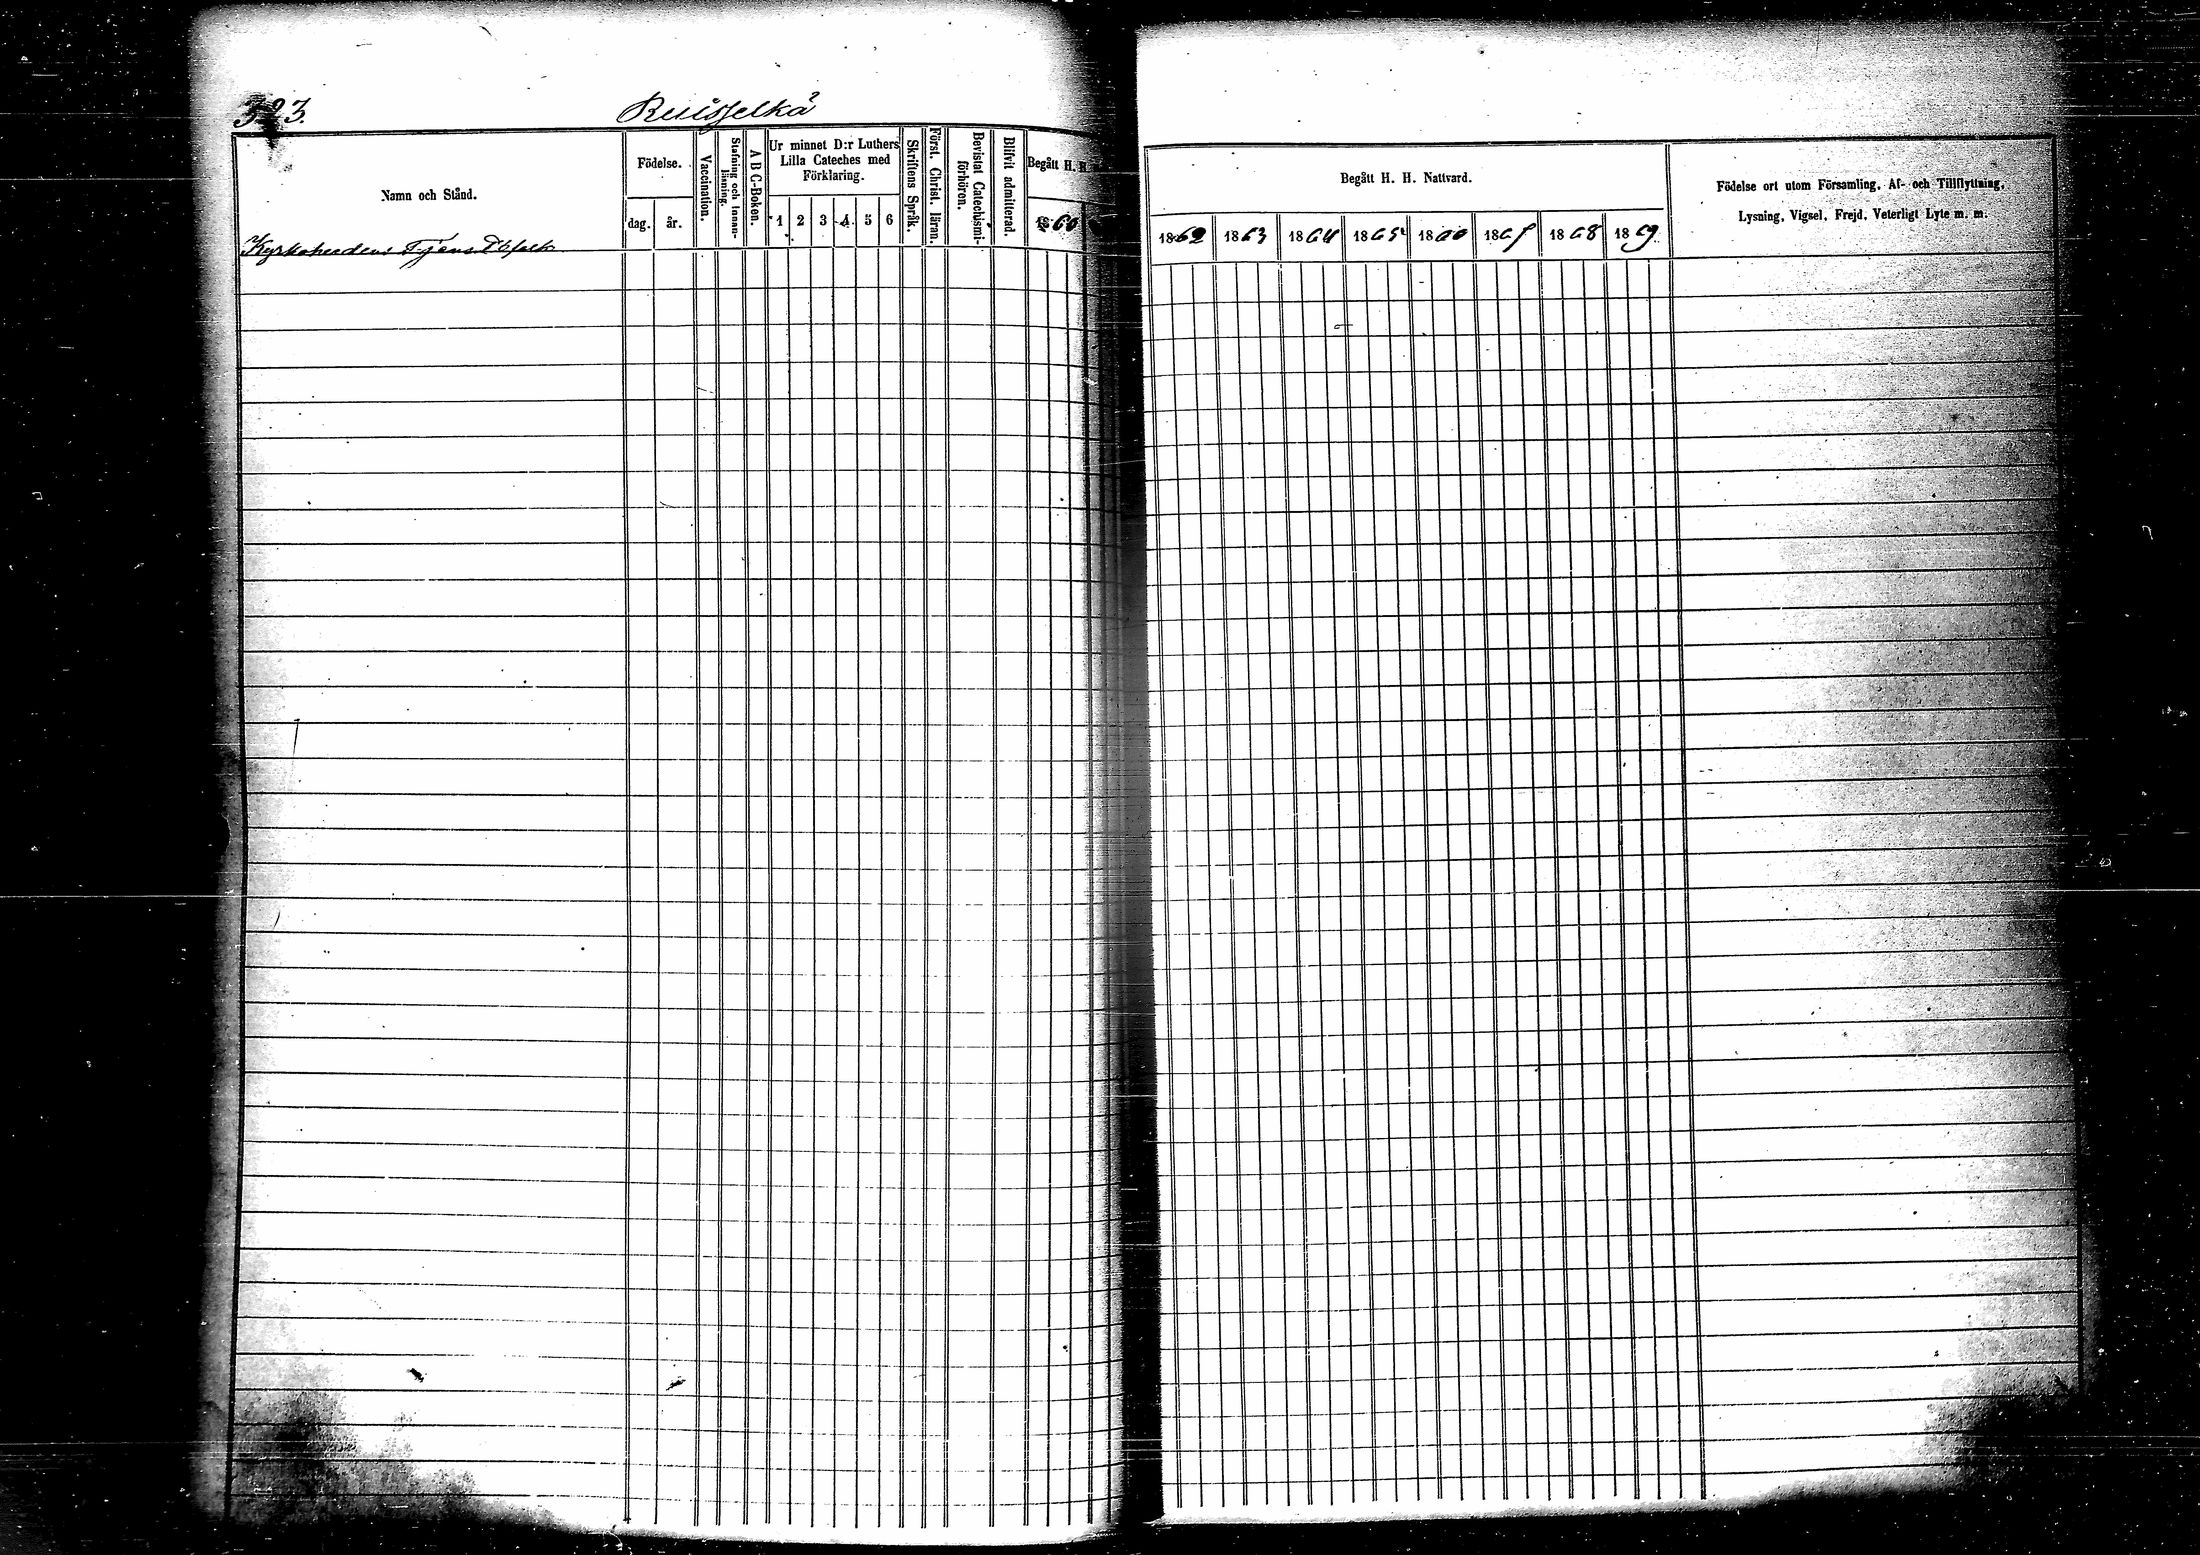 323.
Ruisselkä
Namn och Stånd.
Födelse.
dag. år.
Vaccination.
Stafning och Innan-
läsning.
A B C-Boken.
Ur minnet D:r Luthers
Lilla Cateches med
Förklaring.
1 2 3 4 5 6
Skriftens Språk.
Först. Christ. läran.
Bevistat Catechismi-
förhören.
Blifvit admitterad.
Begått H. H.
1860
Kyrkoherdens Tjenstefolk
Begått H. H. Nattvard.
1862 1863 1864 1865 1866 1867 1868 1869
Födelse ort utom Församling, Af- och Tillflyttning,
Lysning, Vigsel, Frejd, Veterligt Lyte m. m.